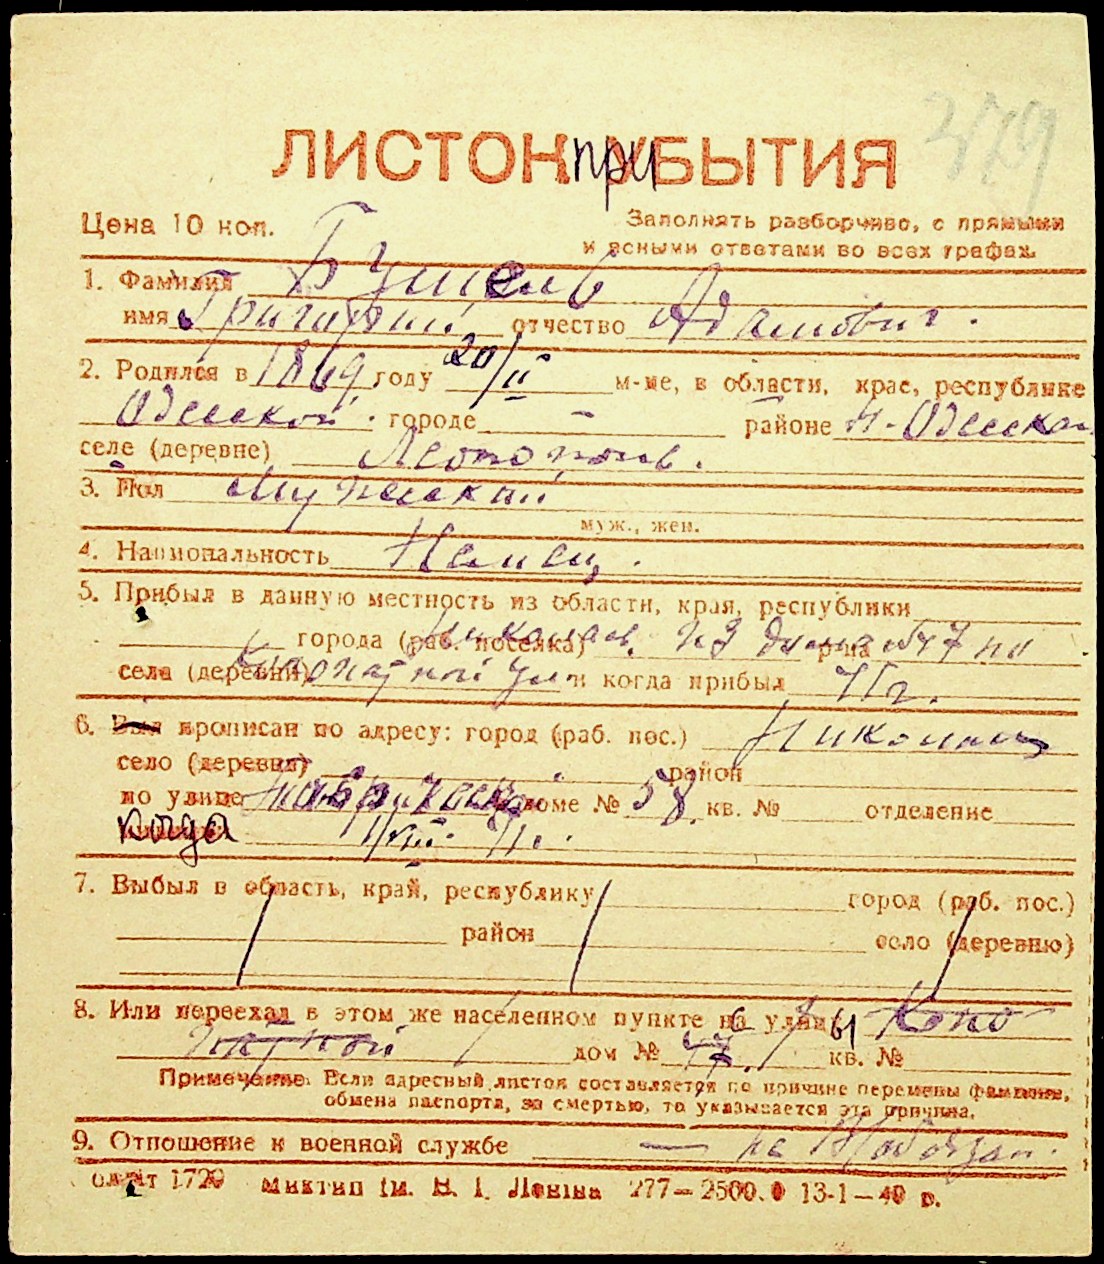 379
ЛИСТОК при УБЫТИЯ
Цена 10 коп. Заполнять разборчиво, с прямыми
и ясными ответами во всех графах.
1. Фамилия Бушель
имя Григорий отчество Адамович.
2. Родился в 1869 году 20/II м-це, в области, крае, республике
Одесской. городе – районе Н-Одесском
селе (деревне)
3. Пол Мужской
муж., жен.
4. Национальность Немец.
5. Прибыл в данную местность из области, края, республики
города (раб. поселка) Николаев. из дома № 47 по
села (деревни) улиц и когда прибыл 41 г.
6. Был прописан по адресу: город (раб. пос.) Николаев
село (деревня) район
по улице доме № 58 кв. № отделение
когда 1/VIII 41 г.
7. Выбыл в область, край, республику город (раб. пос.)
район село (деревню)
8. Или переехал в этом же населенном пункте на улицы
дом № 47. кв. №
Примечание. Если адресный листок составляется по причине перемены фамилии,
обмена паспорта, за смертью, то указывается эта причина.
9. Отношение к военной службе — не
1729 277—2500.0 13-1—40 р.